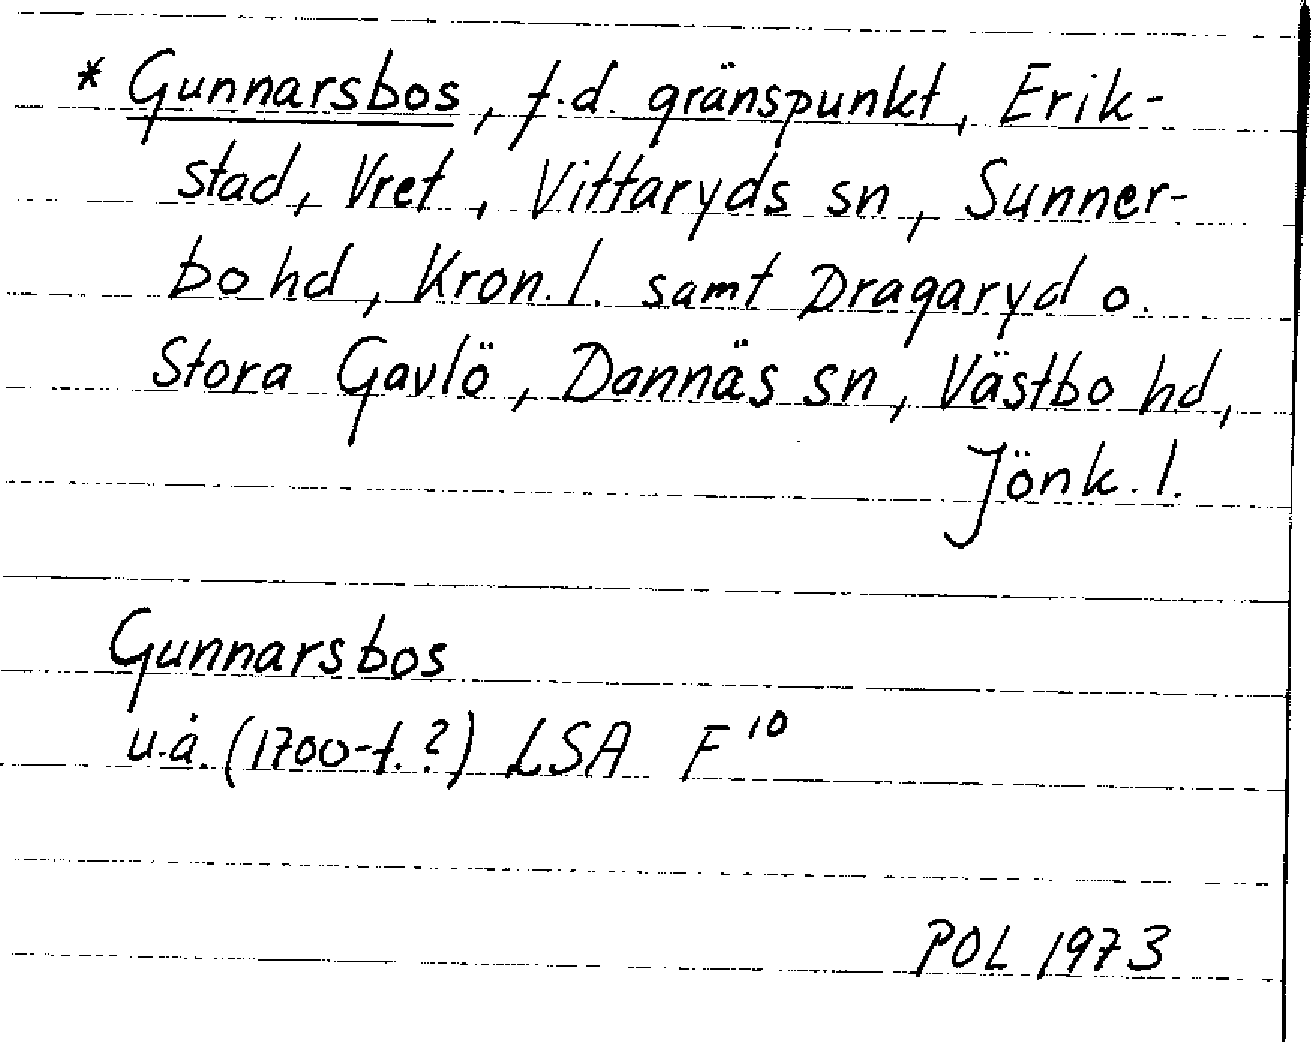 * Gunnarsbos, f.d. gränspunkt, Erik-
stad, Vret, Vittaryds sn, Sunner-
bo hd, Kron. l. samt Dragaryd o.
Stora Gavlö, Dannäs sn, Västbo hd,
Jönk. l.
Gunnarsbos
u.å. (1700-t. ?) LSA F¹⁰
POL 1973